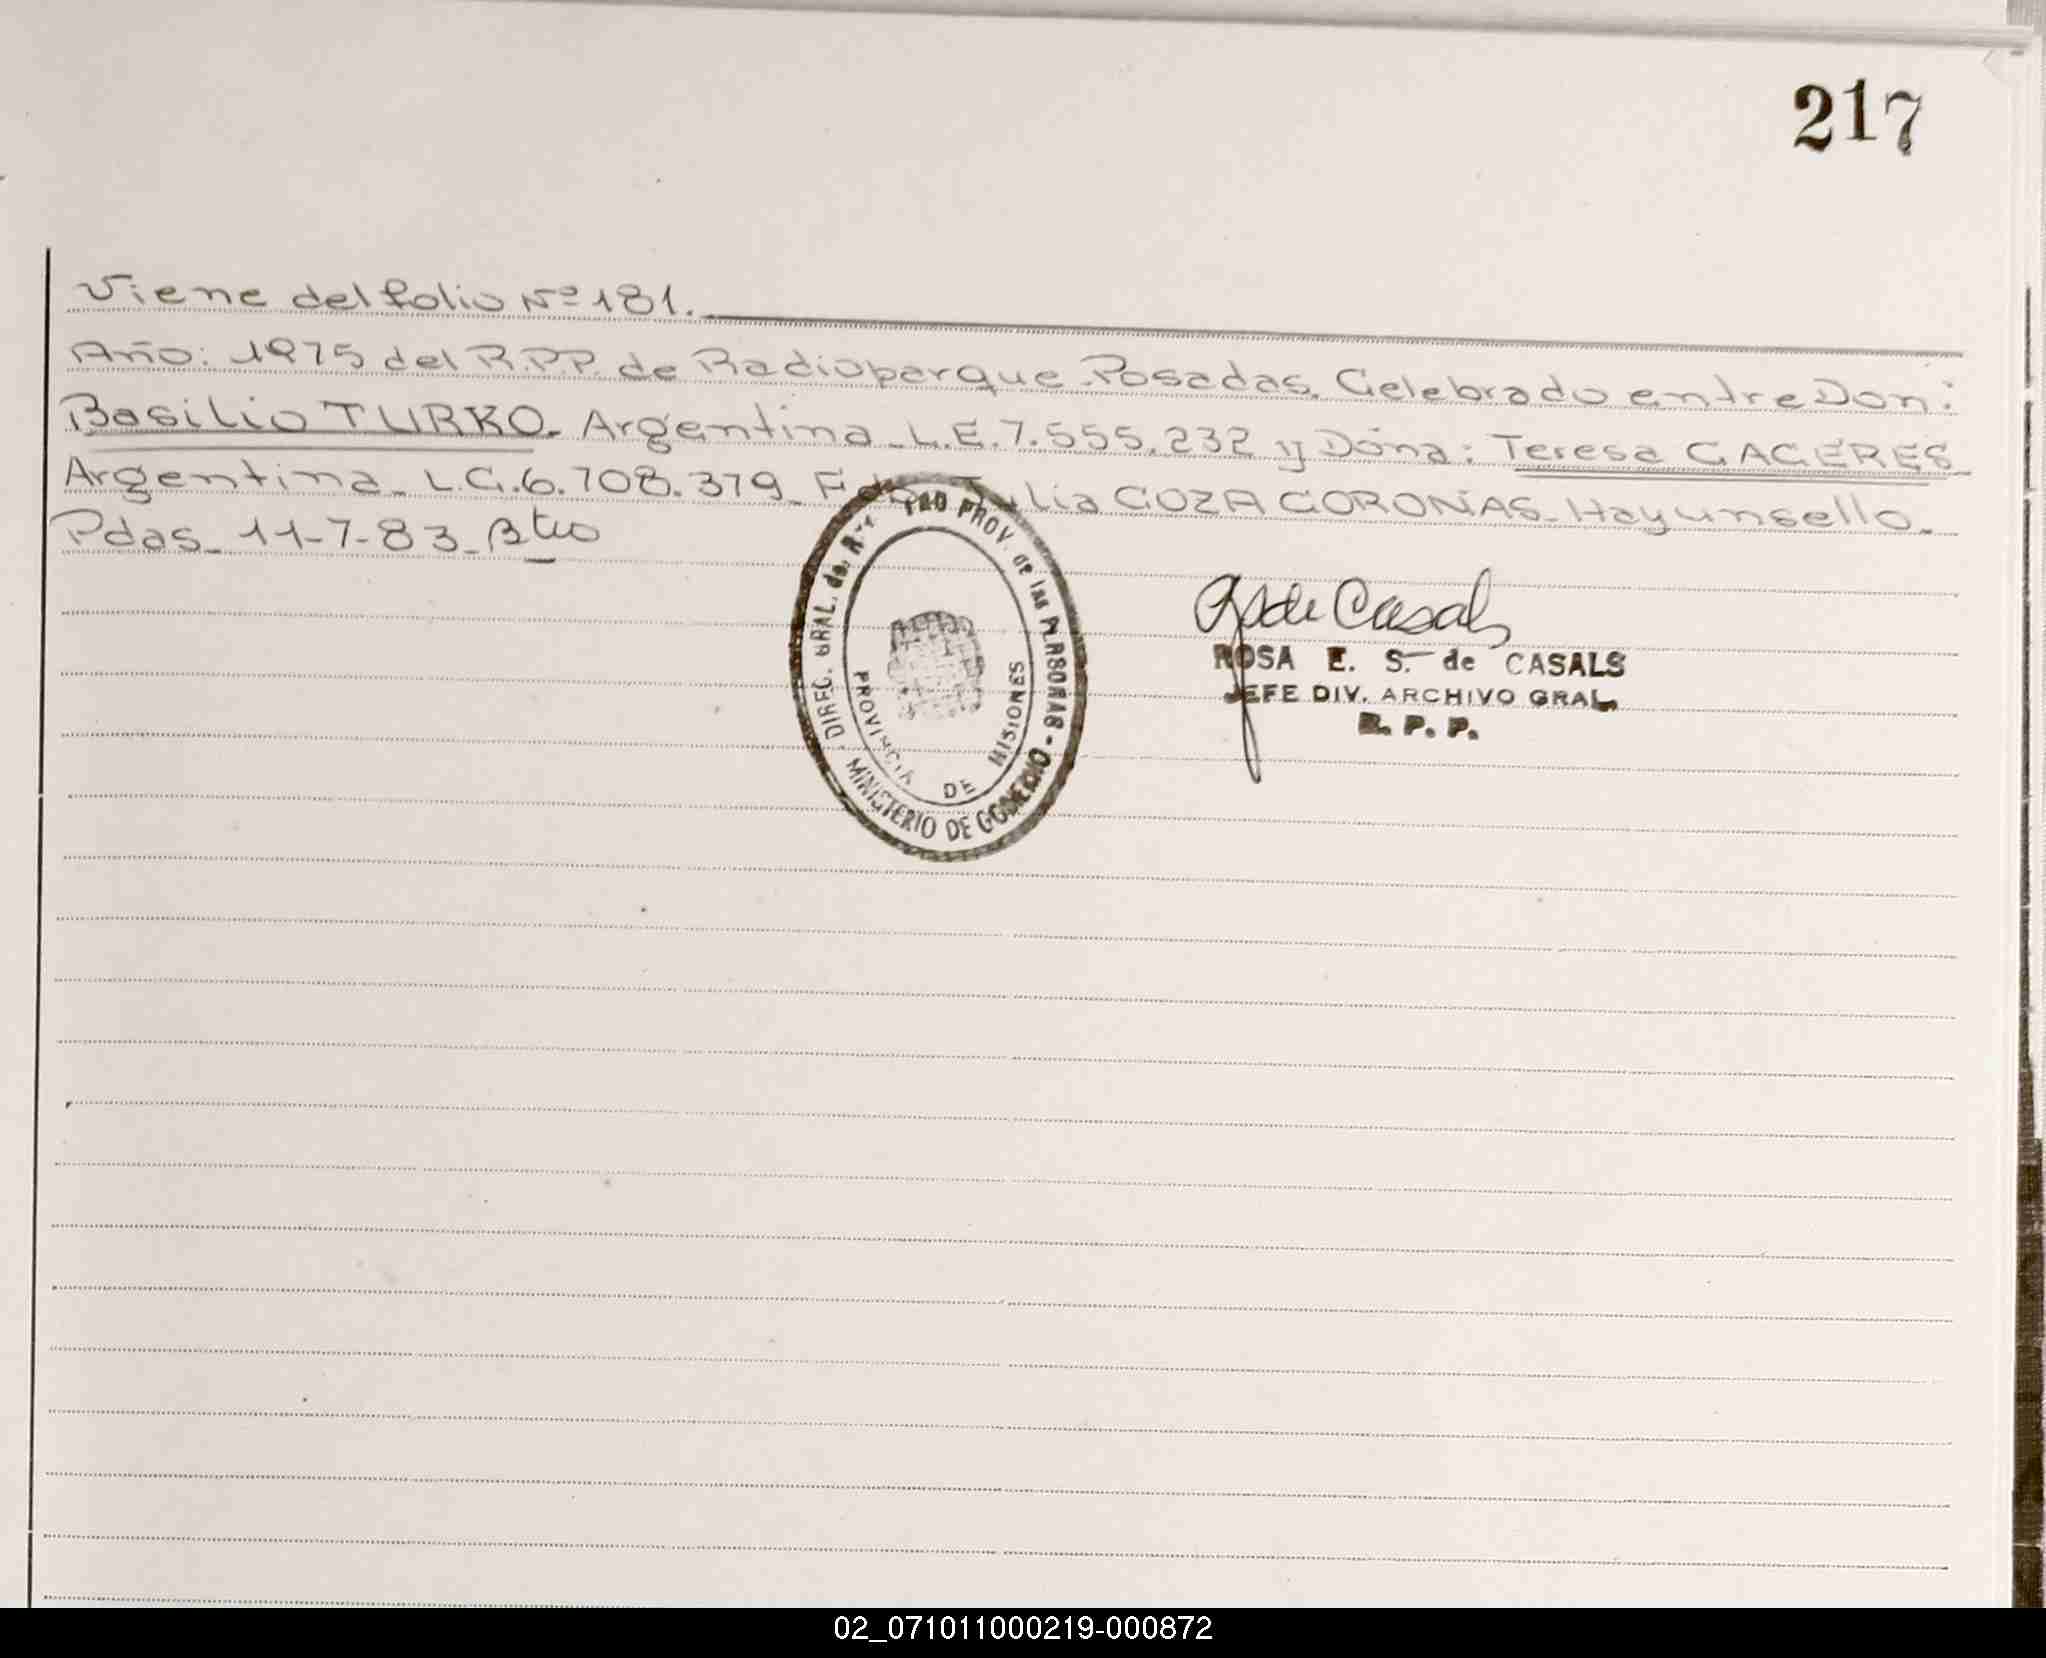 217
Viene del folio Nº 181.
Año: 1975 del R.P.P. de Radioparque Posadas. Celebrado entre Don:
Basilio TURKO. Argentina - L.E. 7.555.232 y Doña: Teresa CACERES
Argentina - L.C. 6.708.379 - Fdo. Julia COZA CORONAS - Hay un sello.
Pdas - 11-7-83 - Btio
DIREC. GRAL. de PROV. de las PERSONAS - MINISTERIO DE GOBIERNO
PROVINCIA DE MISIONES
de Casals
ROSA E. S. de CASALS
JEFE DIV. ARCHIVO GRAL.
R. P. P.
02_071011000219-000872